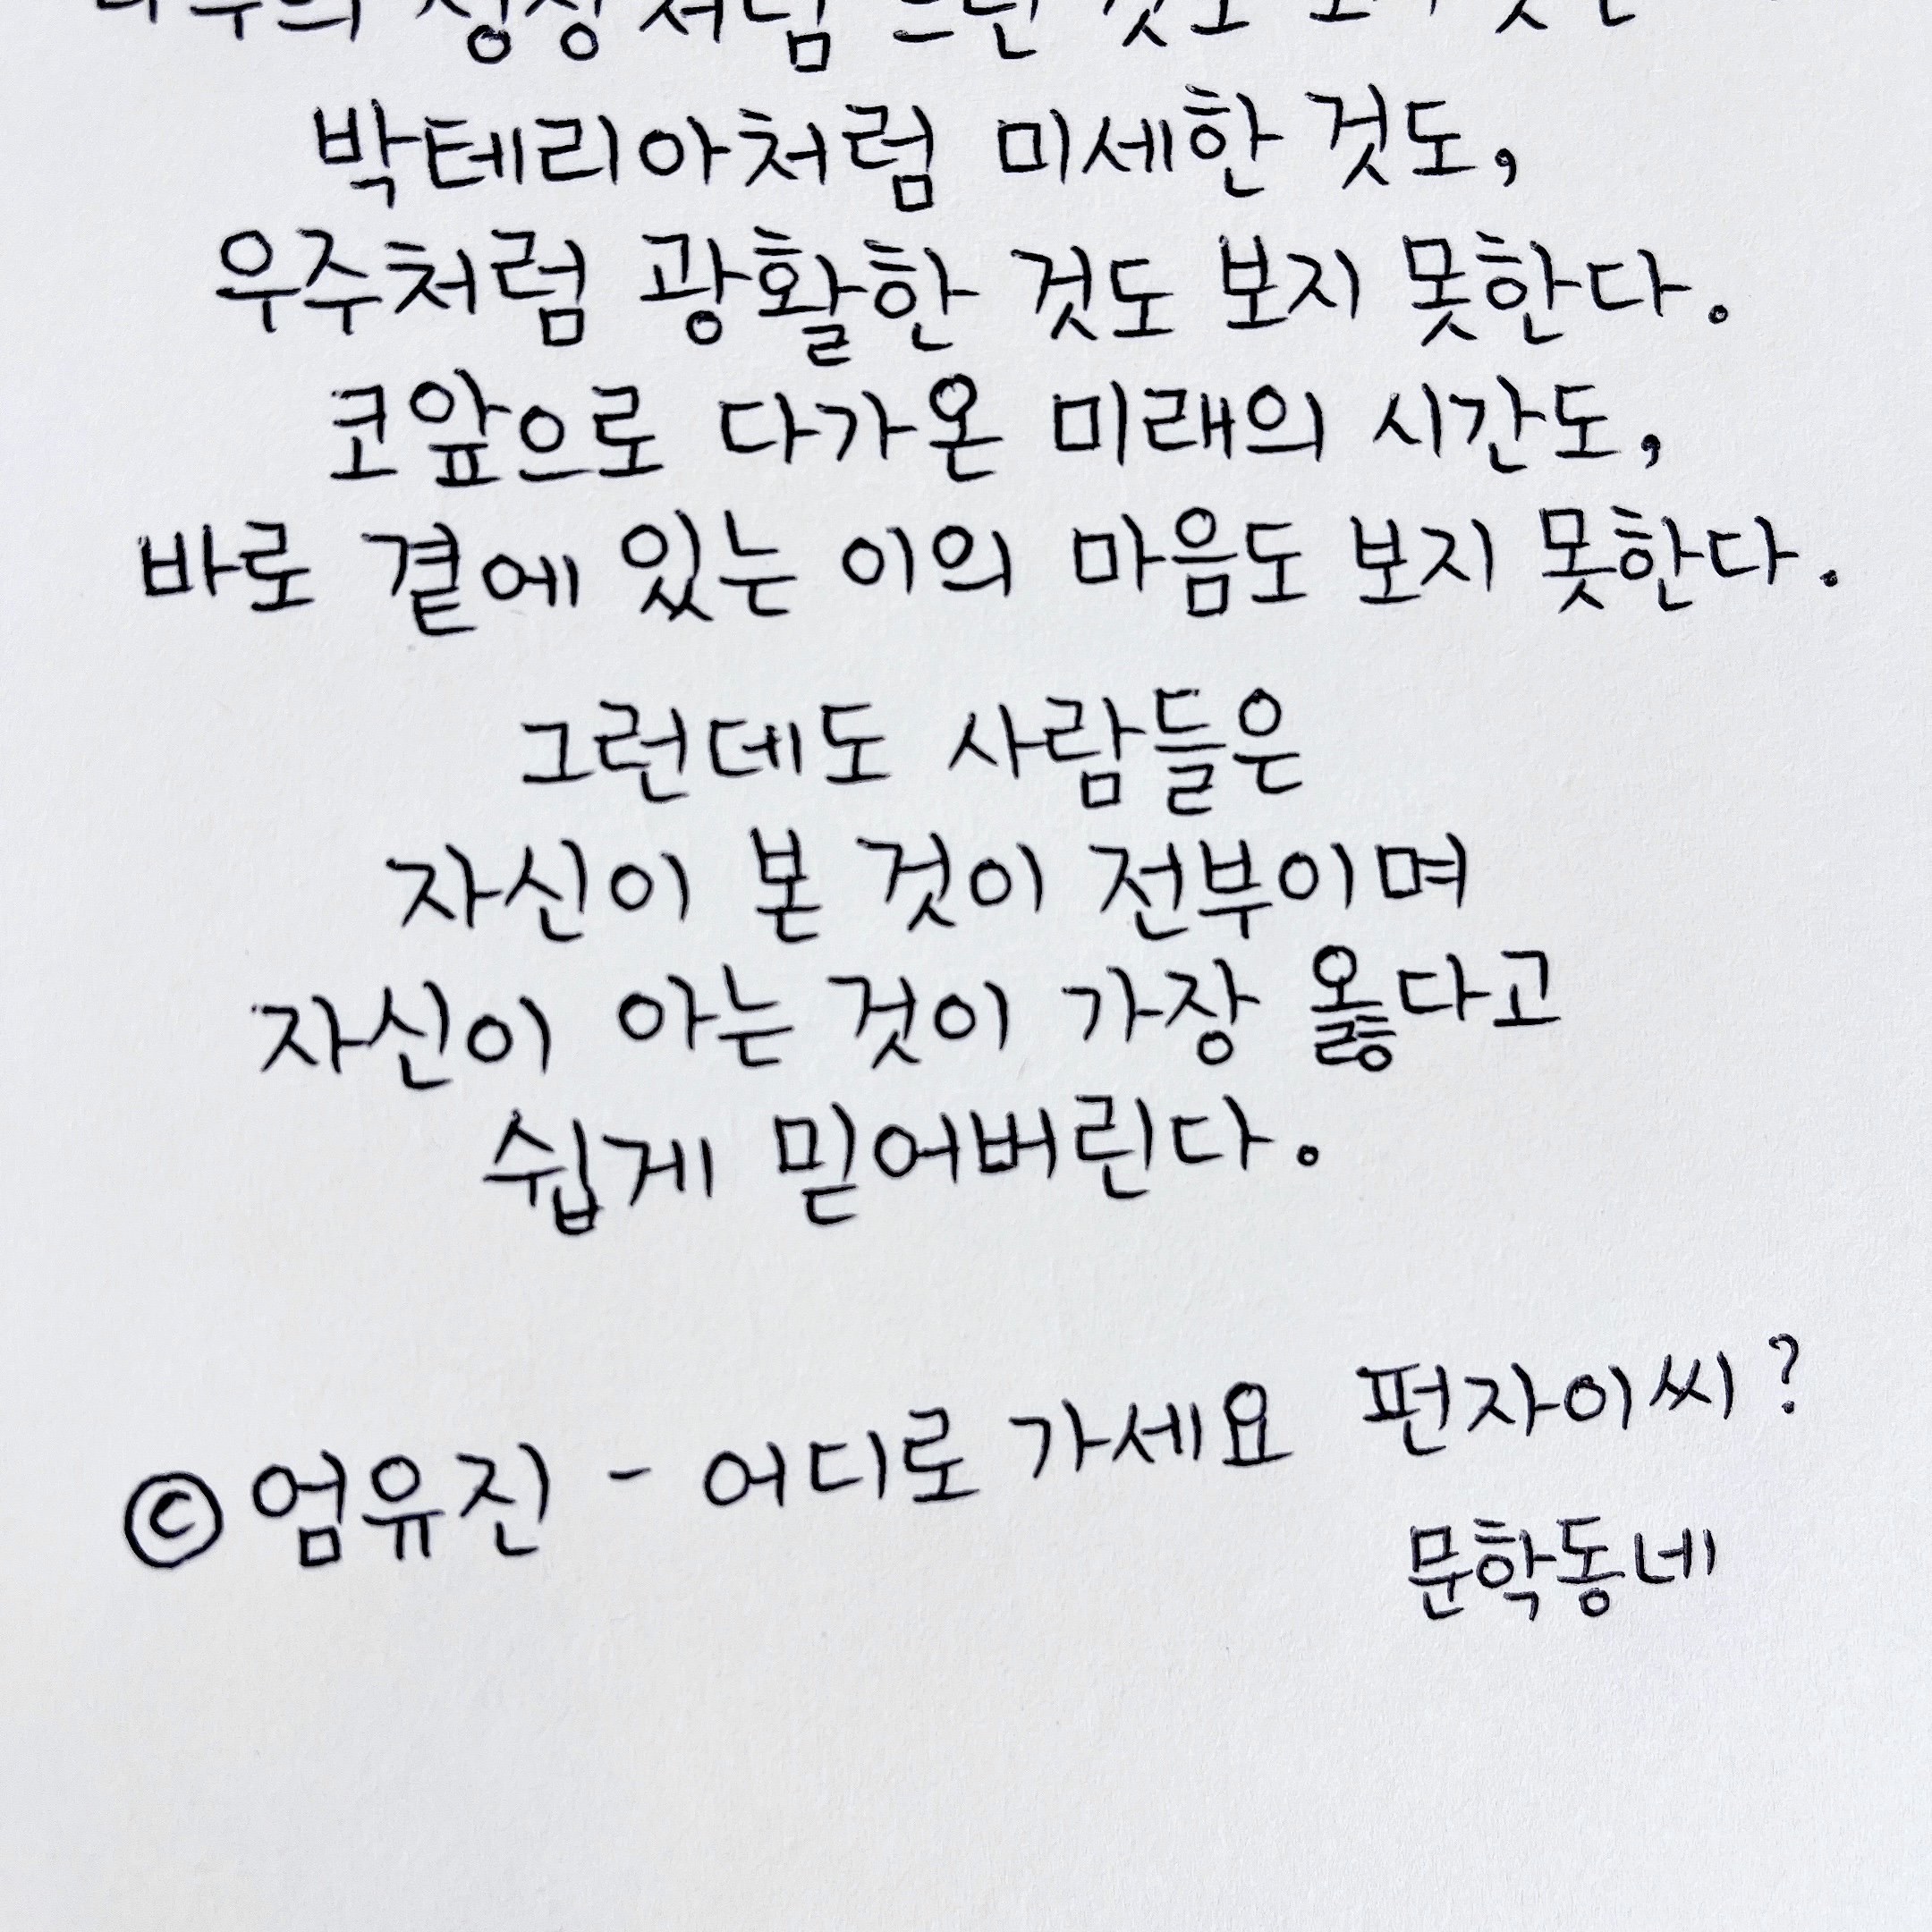 박테리아처럼 미세한 것도,
우주처럼 광활한 것도 보지 못한다.
코앞으로 다가온 미래의 시간도,
바로 곁에 있는 이의 마음도 보지 못한다.
그런데도 사람들은
자신이 본 것이 전부이며
자신이 아는 것이 가장 옳다고
쉽게 믿어버린다.
© 엄유진 - 어디로 가세요 펀자이씨?
문학동네